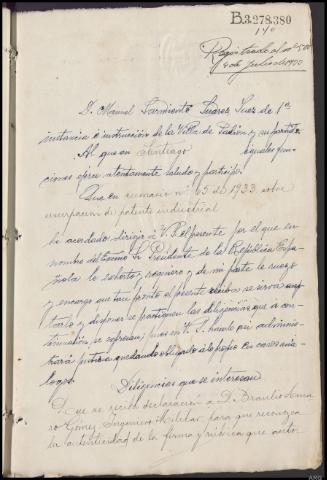 B.3.278.380
1ª
Registrado al nº
4 de julio de 1930
D. Manuel Sarmiento Suárez, Juez de 1ª
instancia e instrucción de la Villa de Padrón y su partido.
Al que en Santiago iguales fun-
ciones ejerce atentamente saludo y participo.
Que en sumario nº 65 de 1933 sobre
usurpación de patente industrial
he acordado dirigir a V. S. el presente por el que en
nombre del Excmo. Sr. Presidente de la República Espa-
ñola le exhorto y requiero y de mi parte le ruego
y encargo que tan pronto el presente reciba se sirva acep-
tarlo y disponer se practiquen las diligencias que a con-
tinuación se expresan pues en V. S. hacerlo así adminis-
trará justicia quedando obligado a lo propio en casos aná-
logos.
Diligencias que se interesan
Que se reciba declaración a D. Braulio Ama-
ro Gómez, Ingeniero Militar, para que reconozca
la autenticidad de la firma y rúbrica que auto-
ARG